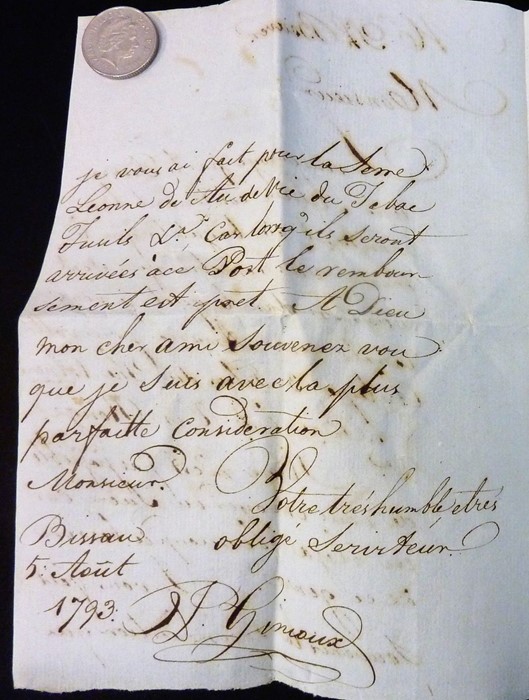 je vous ai fait pour la Serre
Leonne de l'Au de Vie du Tebac
Fusils &.r Car lorsq'ils seront
arrivées à ce Port le rembour-
sement est pret. A Dieu
mon cher ami Souvenez vou
que je suis avec la plus
parfaitte Consideration
Monsieur
Votre trés humble et rés
obligé Serirteur
Bissau
5. Août
1793.
Ginioux